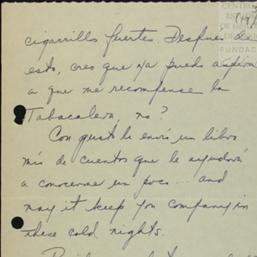 cigarrillos fuertes. Después de
esto, creo que ya puedo aspirar
a que me recompense la
Tabacalera, no?
Con gusto le envío un libro
mío de cuentos que le ayudará
a conocerme un poco... and
may it keep you company in
these cold nights.